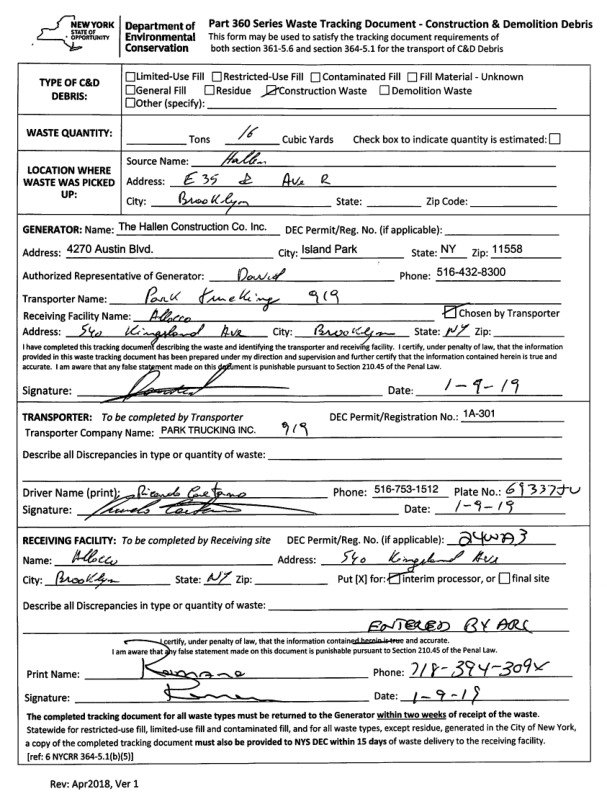 NEW YORK STATE OF OPPORTUNITY
Department of Environmental Conservation
Part 360 Series Waste Tracking Document - Construction & Demolition Debris
This form may be used to satisfy the tracking document requirements of
both section 361-5.6 and section 364-5.1 for the transport of C&D Debris
TYPE OF C&D DEBRIS:
Limited-Use Fill Restricted-Use Fill Contaminated Fill Fill Material - Unknown
General Fill Residue Construction Waste Demolition Waste
Other (specify):
WASTE QUANTITY: Tons 16 Cubic Yards Check box to indicate quantity is estimated:
LOCATION WHERE WASTE WAS PICKED UP:
Source Name: Hallen
Address: E 35 & Ave R
City: Brooklyn State: Zip Code:
GENERATOR: Name: The Hallen Construction Co. Inc. DEC Permit/Reg. No. (if applicable):
Address: 4270 Austin Blvd. City: Island Park State: NY Zip: 11558
Authorized Representative of Generator: David Phone: 516-432-8300
Transporter Name: Park Trucking 919
Receiving Facility Name: Allocco Chosen by Transporter
Address: 540 Kingsland Ave City: Brooklyn State: NY Zip:
I have completed this tracking document describing the waste and identifying the transporter and receiving facility. I certify, under penalty of law, that the information
provided in this waste tracking document has been prepared under my direction and supervision and further certify that the information contained herein is true and
accurate. I am aware that any false statement made on this document is punishable pursuant to Section 210.45 of the Penal Law.
Signature: Date: 1-9-19
TRANSPORTER: To be completed by Transporter DEC Permit/Registration No.: 1A-301
Transporter Company Name: PARK TRUCKING INC. 919
Describe all Discrepancies in type or quantity of waste:
Driver Name (print): Ricardo Caetano Phone: 516-753-1512 Plate No.: 69337JU
Signature: Date: 1-9-19
RECEIVING FACILITY: To be completed by Receiving site DEC Permit/Reg. No. (if applicable): 24WA3
Name: Allocco Address: 540 Kingsland Ave
City: Brooklyn State: NY Zip: Put [X] for: interim processor, or final site
Describe all Discrepancies in type or quantity of waste:
ENTERED BY ARC
I certify, under penalty of law, that the information contained herein is true and accurate.
I am aware that any false statement made on this document is punishable pursuant to Section 210.45 of the Penal Law.
Print Name: Phone:
Signature: Date: 1-9-19
The completed tracking document for all waste types must be returned to the Generator within two weeks of receipt of the waste.
Statewide for restricted-use fill, limited-use fill and contaminated fill, and for all waste types, except residue, generated in the City of New York,
a copy of the completed tracking document must also be provided to NYS DEC within 15 days of waste delivery to the receiving facility.
[ref: 6 NYCRR 364-5.1(b)(5)]
Rev: Apr2018, Ver 1